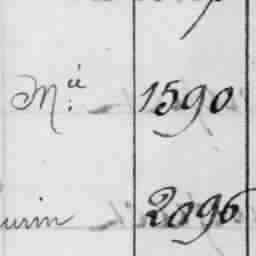 Mié 1590
urin 2096